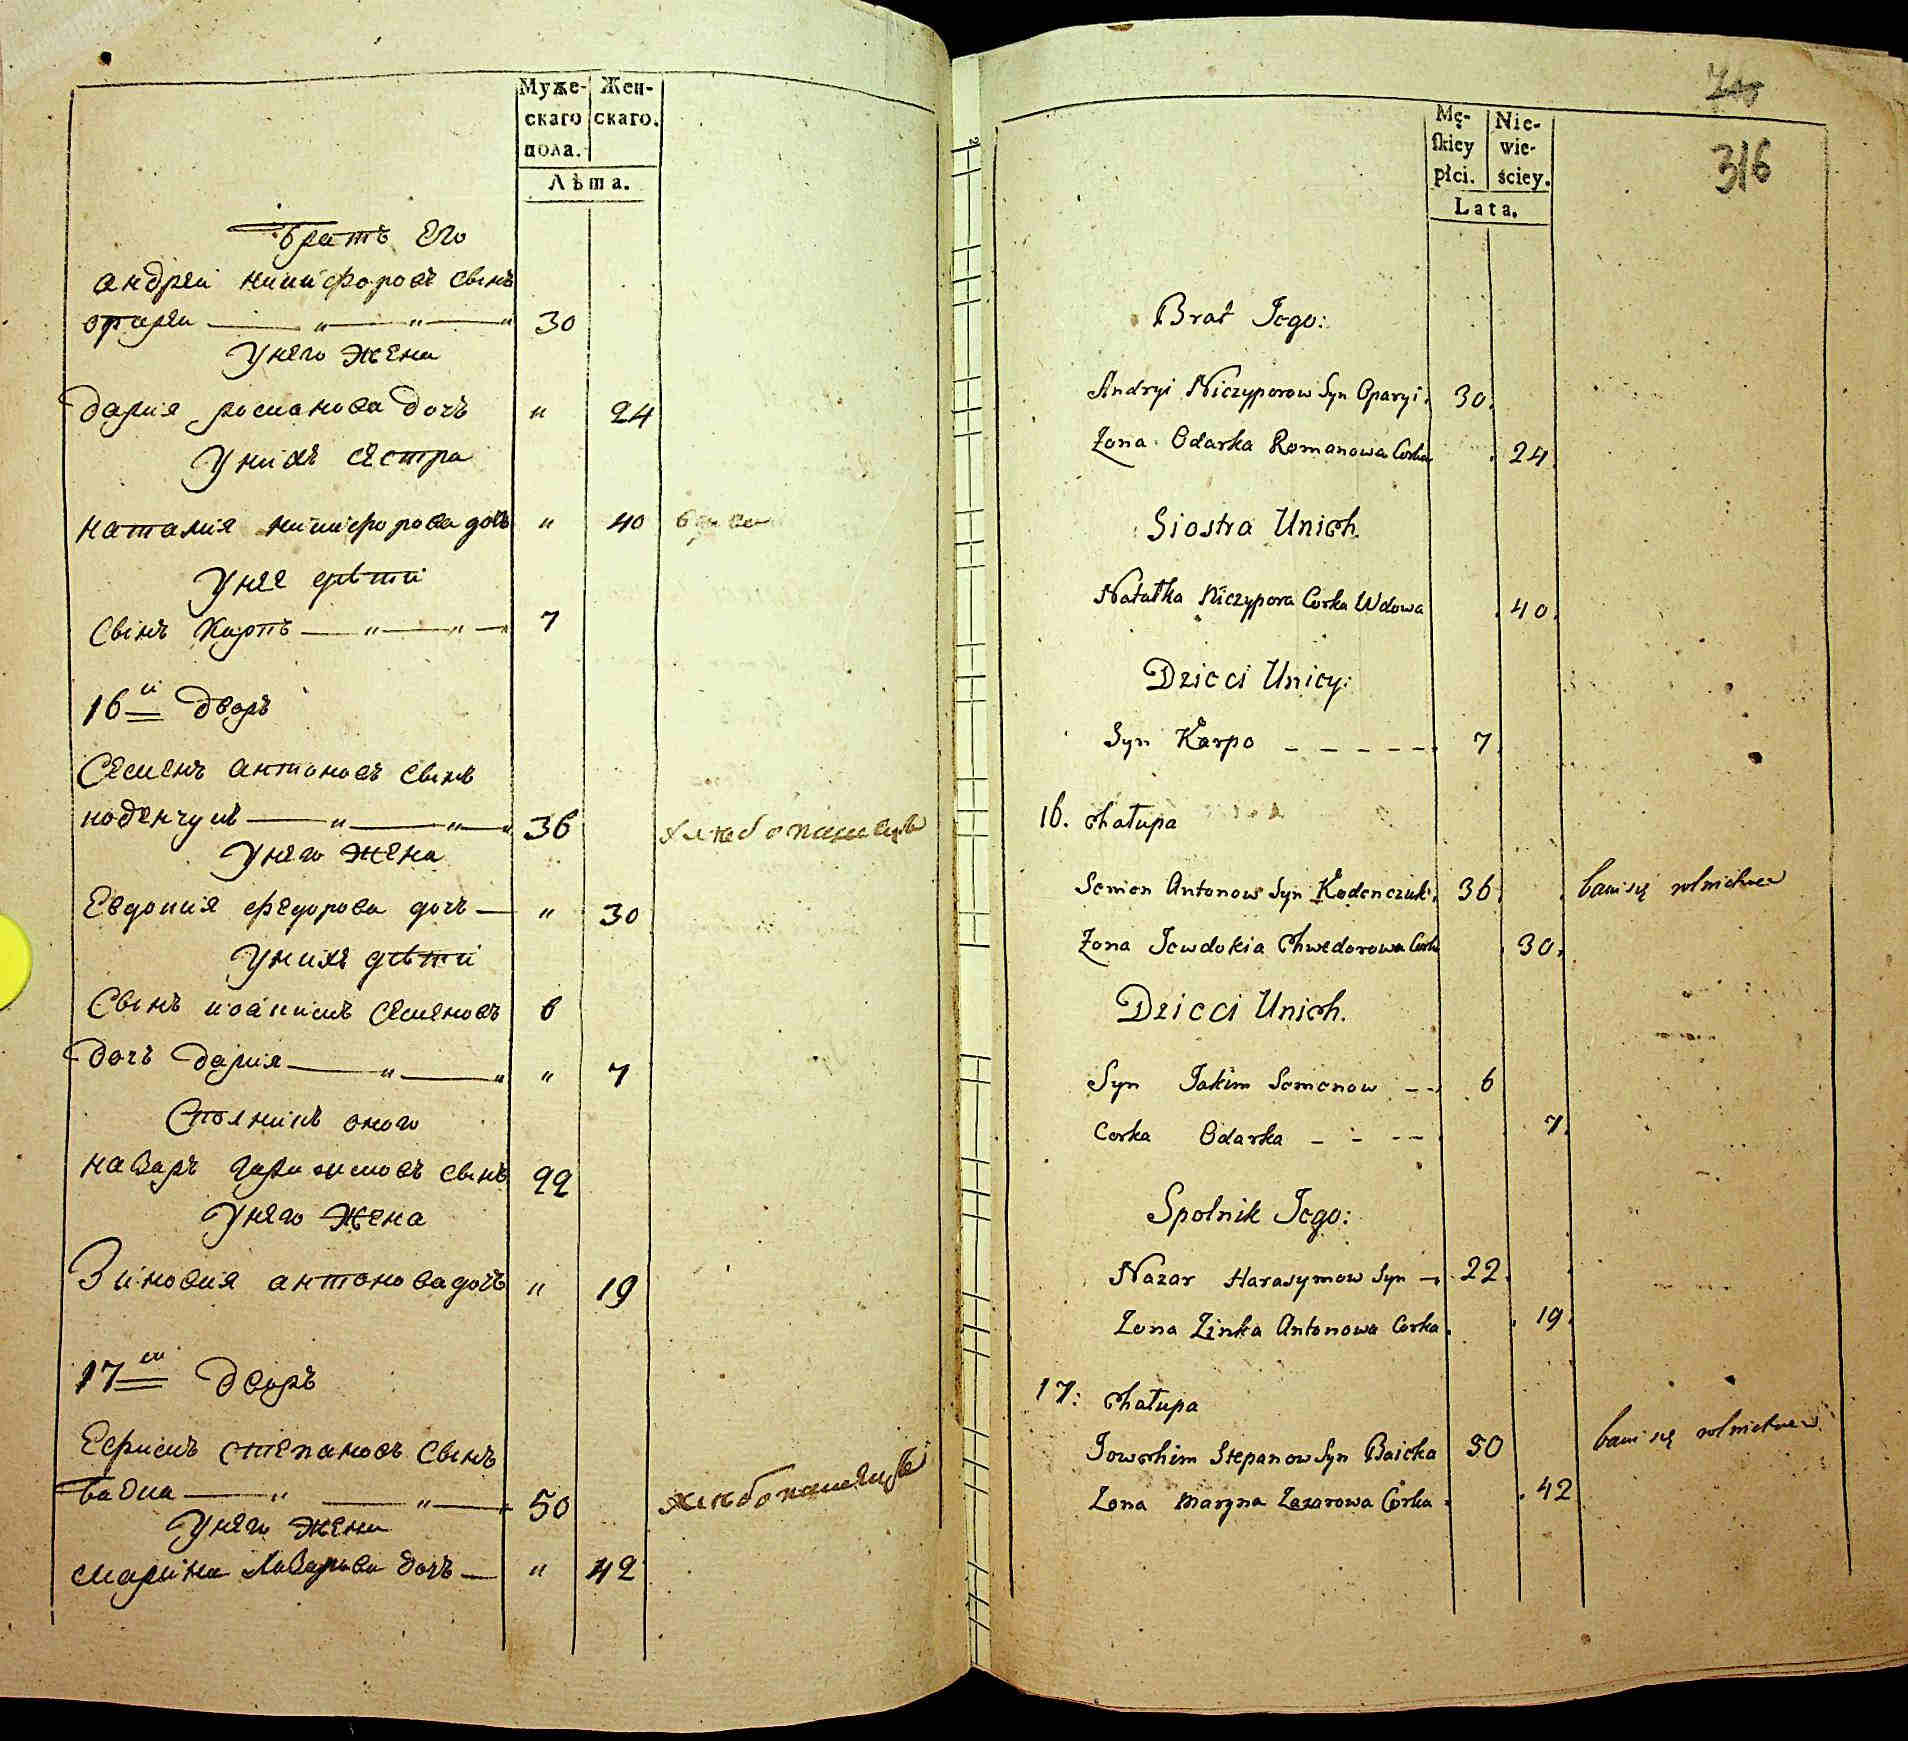 Муже-
скаго
пола.
Жен-
скаго.
Лѣта.
братъ его
андрей никифоровъ сынъ
опарѣи 30
у него жена
дария романова дочь " 24
у нихъ сестра
наталия никифорова дочь " 40 вдова
у нее дѣти
сынъ карпъ 7
16й дворъ
Семенъ антоновъ сынъ
коденчукъ 36 хлѣбопашецъ
у него жена
Евдокия федорова дочь " 30
у нихъ дѣти
Сынъ иоакимъ семеновъ 6
дочь дария " 7
Сполникъ оного
назаръ гарасимовъ сынъ 22
у него жена
Зиновия антонова дочь " 19
17й дворъ
Ефимъ степановъ сынъ
50 хлѣбопашецъ
у него жена
марина лазарева дочь " 42
316
Mę-
ſkiey
płci.
Nie-
wie-
ściey.
Lata.
Brat Jego:
Andryi Niczyporow Syn Oparyi. 30.
Żona Odarka Romanowa Corka 24.
Siostra Unich
Natałka Niczypora Corka Wdowa 40.
Dzieci Uniey:
Syn Karpo 7.
16. Chałupa
Semion Antonow Syn Kodenczuk. 36. bawi się rolnictwem
Żona Jewdokia Chwedorowa Corka 30.
Dzieci Unich.
Syn Jakim Semenow 6
Corka Odarka 7.
Spolnik Jego:
Nazar Harasymow Syn 22.
Żona Zinka Antonowa Corka. 19.
17: Chałupa
Jowchim Stepanow Syn Baicka 50 bawi się rolnictwem
Żona Maryna Lazarowa Corka. 42